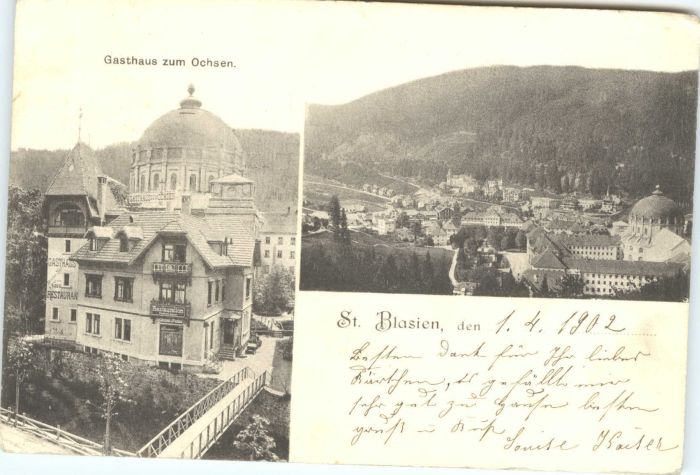 Gasthaus zum Ochsen.
GASTHAUS
RESTAURAN
Restauration
St. Blasien, den 1.4.1902
Besten Dank für Ihr liebes
Kärtchen, es gefällt mir
sehr gut zu Hause besten
Gruß u Kuß
Louise